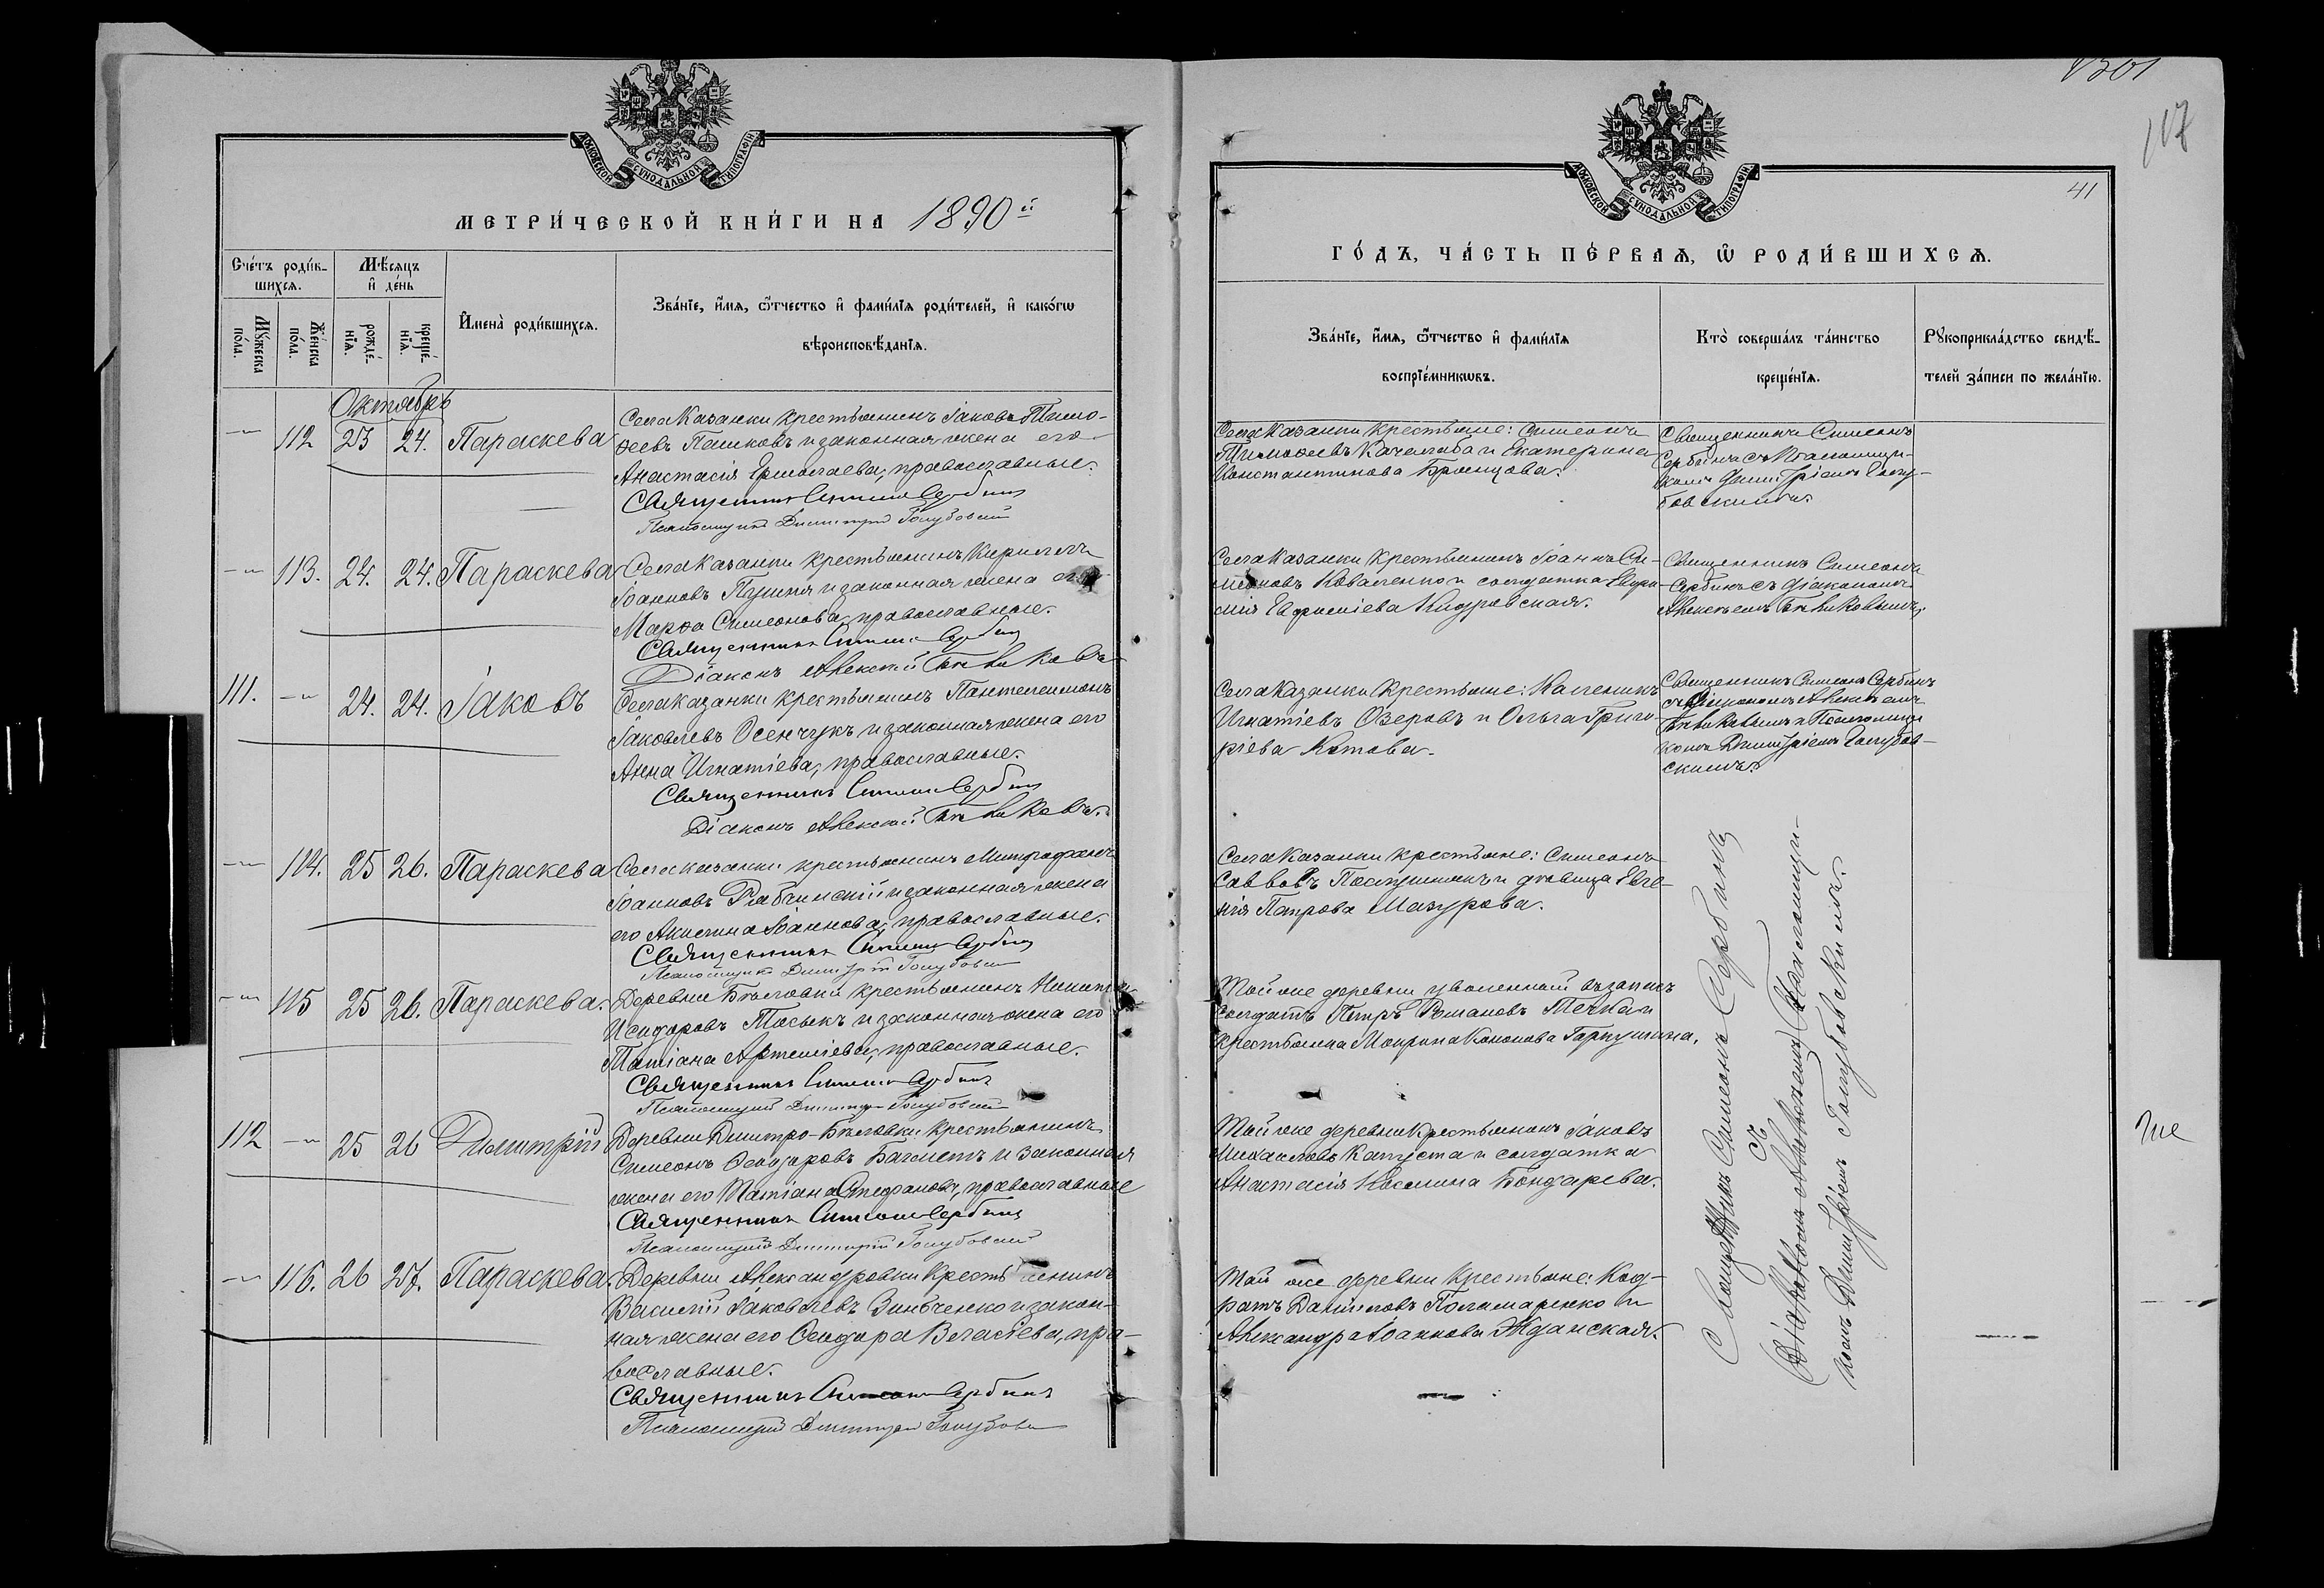 МОСКОВСКОЙ СѴНОДАЛЬНОЙ ТИПОГРАФІИ
МЕТРИ́ЧЕСКОЙ КНИ́ГИ НА 1890й
Сче́тъ роди́в-
шихсѧ.
Мѣ́сѧцъ
и҆ де́нь
Мꙋ́жеска
по́ла.
Же́нска
по́ла.
рожде́-
нїѧ.
креще́-
нїѧ.
И҆мена̀ роди́вшихсѧ.
Зва́нїе, и҆́мѧ, ѻ҆́тчество и҆ фами́лїѧ роди́телей, и҆ како́гѡ
вѣроисповѣ́данїѧ.
Октябрь
112 23 24. Параскева
Села Казанки крестьянинъ Іаковъ Тимо-
ѳеевъ Пашковъ и законная жена его
Анастасія Ермолаева, православные.
Священникъ Симеонъ Сербинъ
Псаломщикъ Димитрій Голубовскій
113. 24. 24. Параскева
Села Казанки крестьянинъ Кириллъ
Іоанновъ и законная жена его
Марѳа Симеонова, православные.
Священникъ Симеонъ Сербинъ
Діаконъ Алексій
111. 24. 24. Іаковъ
Села Казанки крестьянинъ Пантелеимонъ
Іаковлевъ Осенчукъ и законная жена его
Анна Игнатіева, православные.
Священникъ Симеонъ Сербинъ
Діаконъ Алексій
114. 25 26. Параскева
Села Казанки крестьянинъ Митрофанъ
Іоанновъ и законная жена
его Акилина Іоаннова, православные.
Священникъ Симеонъ Сербинъ
Псаломщикъ Димитрій Голубовскій
115 25 26. Параскева.
Деревни Бѣловки крестьянинъ Никита
Исидоровъ и законная жена его
Татіана Артеміева, православные.
Священникъ Симеонъ Сербинъ
Псаломщикъ Димитрій Голубовскій
112 25 26 Димитрій
Деревни Димитро-Бѣловки крестьянинъ
Симеонъ Ѳеодоровъ и законная
жена его Татіана Стефанова, православные
Священникъ Симеонъ Сербинъ
Псаломщикъ Димитрій Голубовскій
116. 26 27. Параскева.
Деревни Александровки крестьянинъ
Василій Іаковлевъ Зинченко и закон-
ная жена его Ѳеодора Власіева, пра-
вославные.
Священникъ Симеонъ Сербинъ
Псаломщикъ Димитрій Голубовскій
117
41
МОСКОВСКОЙ СѴНОДАЛЬНОЙ ТИПОГРАФІИ
ГО́ДЪ, ЧА́СТЬ ПЕ́РВАѦ, Ѡ҆ РОДИ́ВШИХСѦ.
Зва́нїе, и҆́мѧ, ѻ҆́тчество и҆ фами́лїѧ
воспрїе́мникѡвъ.
Кто̀ соверша́лъ та́инство
креще́нїѧ.
Рꙋкоприкла́дство свидѣ́-
телей за́писи по жела́нїю.
Села Казанки крестьяне: Симеонъ
Тимоѳеевъ Качалаба и Екатерина
Константинова Бранцова.
Священникъ Симеонъ
Сербинъ съ Псаломщи-
комъ Димитріемъ Голу-
бовскимъ.
Села Казанки крестьянинъ Іоаннъ Си-
меоновъ Коваленко и солдатка
Евфиміева
Священникъ Симеонъ
Сербинъ съ діакономъ
Алексѣемъ
Села Казанки крестьяне: Каллиникъ
Игнатіевъ Озеровъ и Ольга Григо-
ріева Котова.
Священникъ Симеонъ Сербинъ
съ діакономъ Алексѣемъ
и Псаломщи-
комъ Димитріемъ Голубов-
скимъ.
Села Казанки крестьяне: Симеонъ
Саввовъ и дѣвица Евге-
нія Петрова Мазурова.
Той же деревни уволенный въ запасъ
солдатъ Петръ Романовъ Течка и
крестьянка Мотрона Кононова Гаркушина.
Той же деревни крестьянинъ Іаковъ
Михаиловъ Капуста и солдатка
Анастасія Бондарева.
Той же деревни крестьяне: Код-
ратъ Даніиловъ Поламаренко и
Александра Іоаннова Жданская.
Священникъ Симеонъ Сербинъ
съ
Діакономъ Алексѣемъ Псаломщи-
комъ Димитріемъ Голубовскимъ.